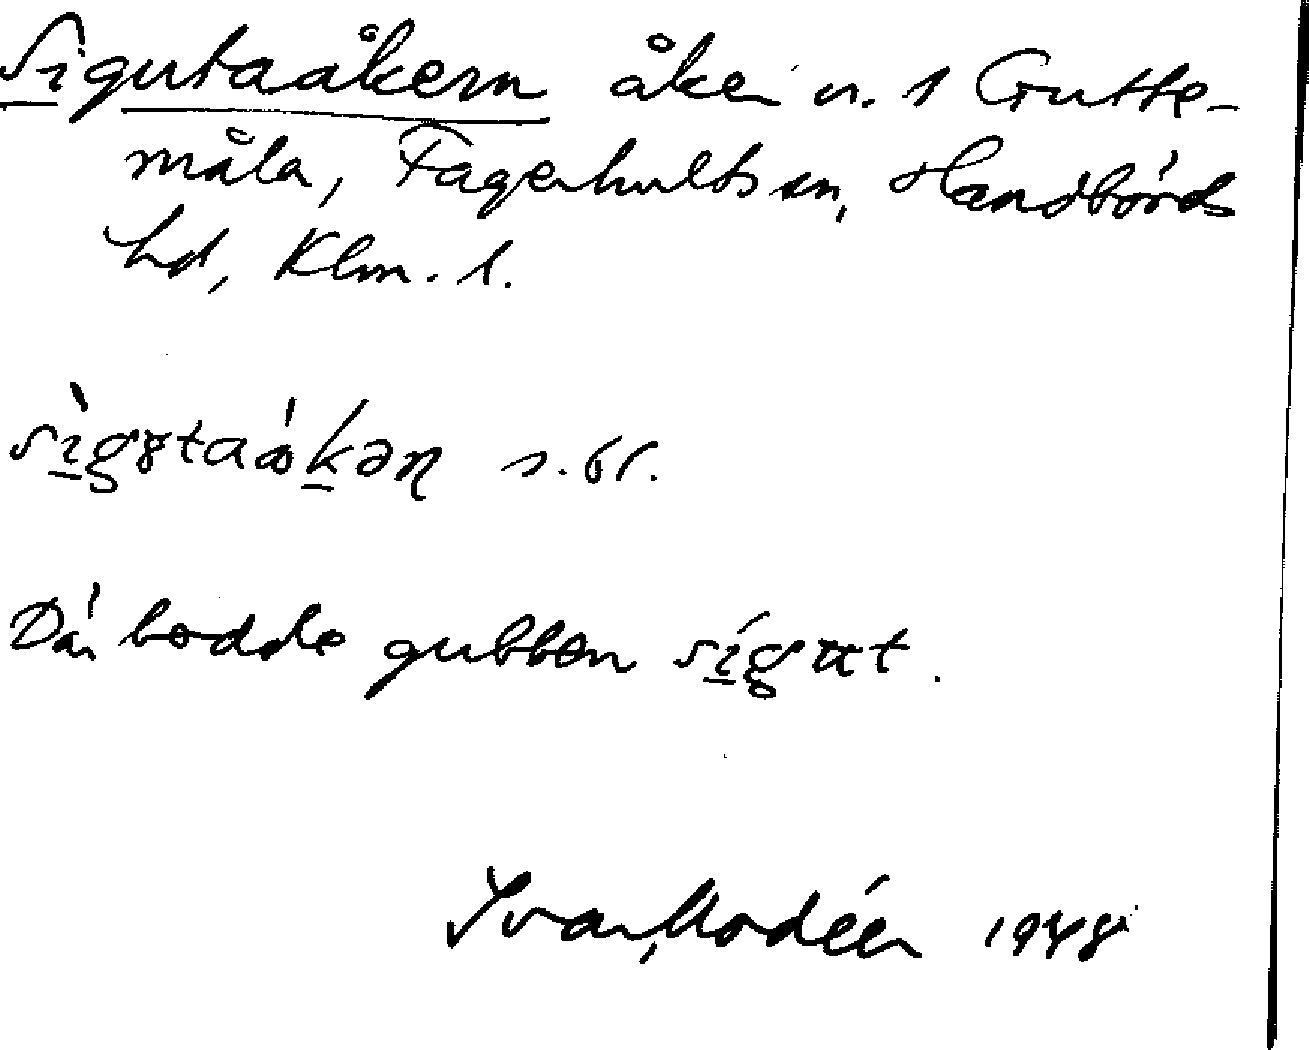 Sigutaåkern åker n. 1 Gutte-
måla, Fagerhults sn, Handbörds
hd, Klm. l.
s. br.
Där bodde gubben
Ivar Modéer 1948